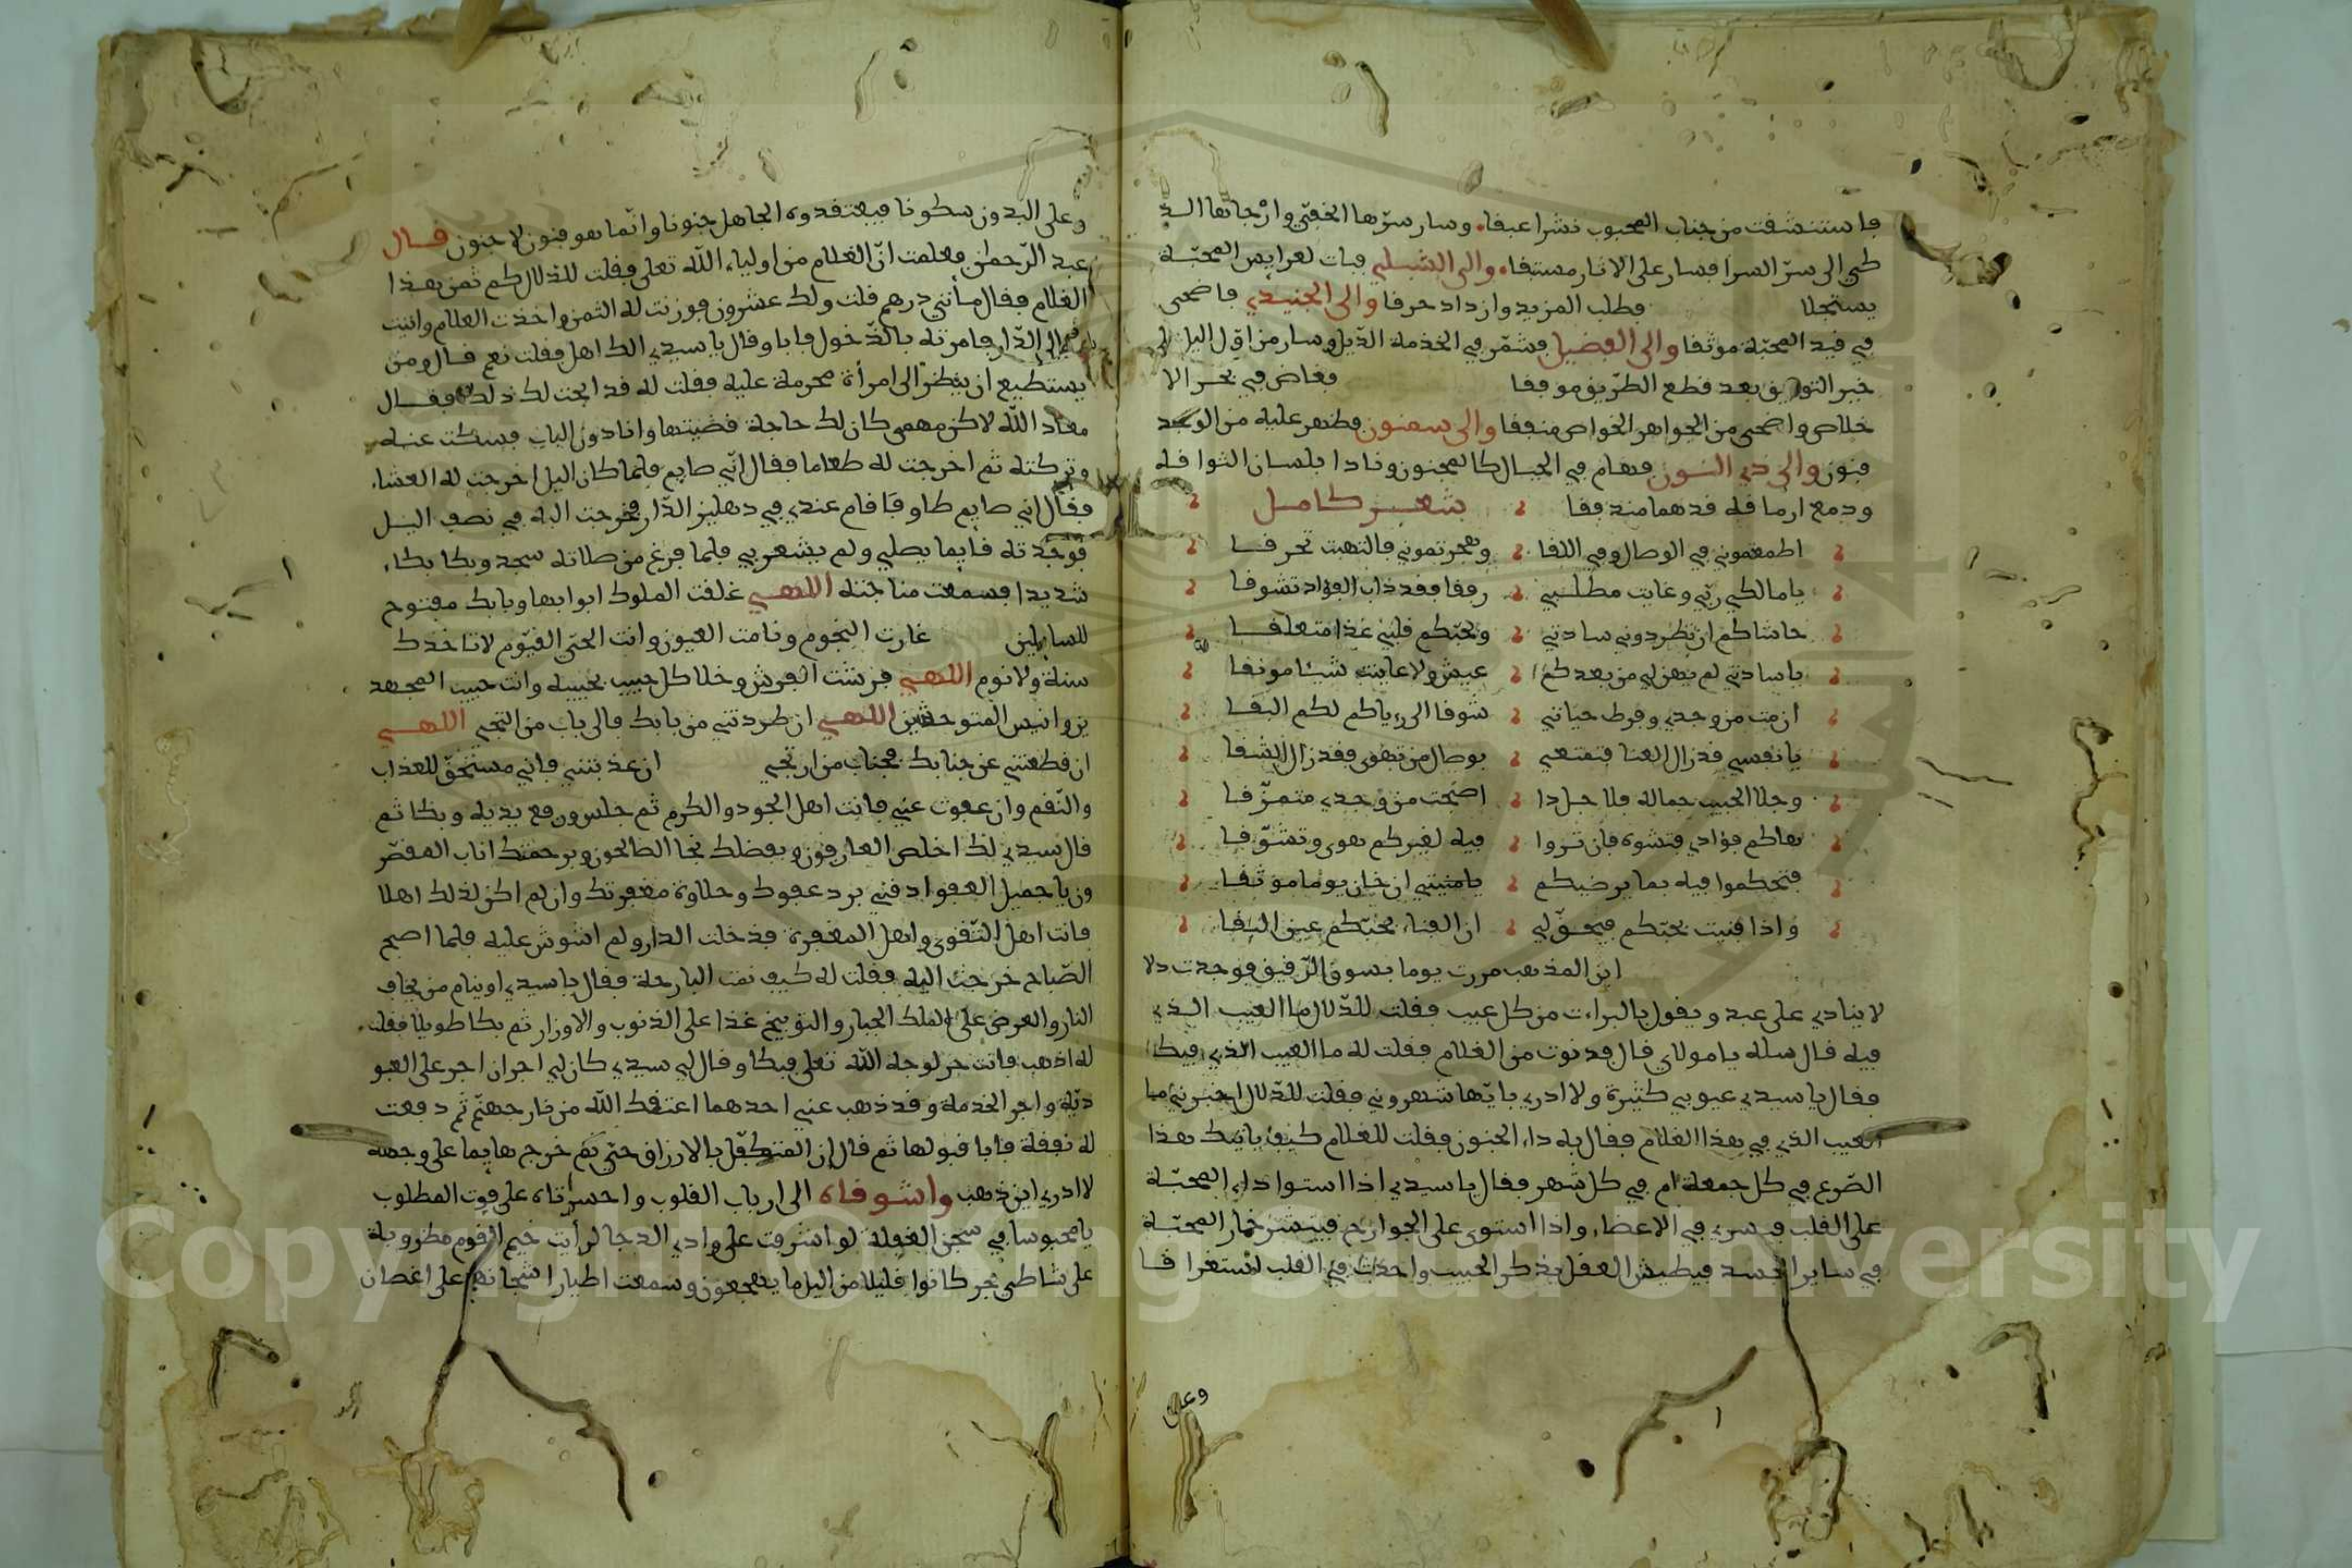 فاستنشقت من جناب المحبوب نشرا عبقا. وسار سرّها الخفيّ وارجائها الذ
طي الى سرّ السرا فسار على الاثار مستبقا. والى الشبلي فبات لعرايس المحبّة
يستجلا فطلب المزيد وازداد حرقا والى الجنيدي فاضحى
في قيد المحبّة موثقا والى الفضيل فشمّر في الخدمة الذيل وسار من اوّل اليل الى
خير التوفيق بعد قطع الطّريق موفقا فغاص في بحر الا
خلاص واضحى من الجواهر الخواص منفقا والى سمنون فظهر عليه من الوجد
فنون والى ذي النّون فهام في الجبال كالمجنون ونادا بلسان التوافه
ودمع ارمافه قدهما مندفقا شعر كامل
اطمعتموني في الوصال وفي اللقا وهجرتموني فالتهبت تحرقا
يا مالكي ربّي وغايت مطلبي رفقا فقد ذاب الفؤاد تشوقا
حاشاكم ان تطردوني سادتي وبحبّكم قلبي غذا متعلقا
يا ساداتي لم يهن لي من بعدكم عيش ولا عاينت شيئا مونقا
ان مت من وجدي وفرط حيائتي شوقا الى رؤياكم لكم البقا
يا نفسي قد زال العنا فتمتعي بوصال من تهوى فقد زال الشقا
وجلا الحبيب جماله فلا جلدا اصبحت من وجدي متمزّقا
هاكم فؤادي فتشوه فان تروا فيه لغيركم هوى وتشوّقا
فتحكموا فيه بما يرضيكم يا منيتي ان خان يوما موثقا
واذا فنيت بحبّكم فيحقّ لي ان الفناء بحبّكم عين البقا
ابن المذهب مررت يوما بسوق الرّقيق فوجدت دلا
لا ينادي على عبد ويقول بالبراءت من كل عيب فقلت للدّلال ما العيب الذي
فيه قال سله يا مولاي قال فدنوت من الغلام فقلت له ما العيب الذي فيك
فقال يا سيدي عيوبي كثيرة ولا ادري بايّها شهروني فقلت للدّلال اخبرني ما
العيب الذي في هذا الغلام فقال به داء الجنون فقلت للغلام كيف ياتيك هذا
الصّرع في كل جمعة ام في كل شهر فقال يا سيدي اذا استوا داء المحبّة
على القلب فيسري في الاعضاء واذا استوى على الجوارح فينتشر خمار المحبّة
في ساير الجسد فيطيش العقل بذكر الحبيب واحدث في القلب استغراقا
وعلى
وعلى البدن سكونا فيعتقدوه الجاهل جنونا وانّما هو فنون لا جنون قال
عبد الرّحمٰن فعلمت انّ الغلام من اولياء اللّه تعلى فقلت للذلال كم ثمن هذا
الغلام فقال مأتي درهم قلت ولك عشرون فوزنت له الثمن واخذت الغلام واتيت
به الى الدّار فامرته بالدّخول فابا وقال يا سيدي الك اهل فقلت نعم قال ومن
يستطيع ان ينظر الى امرأة محرمة عليه فقلت له قد ابحت لك ذلك فقال
معاذ اللّه لاكن مهمى كان لك حاجة قضيتها وانا دون الباب فسكت عنه
وتركته ثم اخرجت له طعاما فقال انّي صايم فلما كان اليل اخرجت له العشاء
فقال اني صايم طاو فاقام عندي في دهليز الدّار فخرجت اليه في نصف اليل
فوجدته قايما يصلي ولم يشعر بي فلما فرغ من صلاته سجد وبكا بكاء
شديدا فسمعت مناجته اللهي غلقت الملوك ابوابها وبابك مفتوح
للسايلين غارت النجوم ونامت العيون وانت الحي القيّوم لا تاخذك
سنة ولا نوم اللهي فرشت الفرش وخلا كل حبيب بحبيبه وانت حبيب المجهد
ين وانيس المتوحشين اللهي ان طردتني من بابك فالى باب من التجي اللهي
ان قطعتني عن جنابك فجناب من ارتجي ان عذبتني فاني مستحقّ للعذاب
والنّقم وان عفوت عني فانت اهل الجود والكرم ثم جلس ورفع يديه وبكا ثم
قال سيدي لك اخلص العارفون وبفضلك نجا الصالحون وبرحمتك اناب المقصّر
ون يا جميل العفو اذقني برد عفوك وحلاوة مغفرتك وان لم اكن لذلك اهلا
فانت اهل التّقوى واهل المغفرة فدخلت الدار ولم اشوش عليه فلما اصبح
الصّباح خرجت اليه فقلت له كيف نمت البارحة فقال يا سيدي اوينام من يخاف
النار والعرض على الملك الجبار والتوبيخ غذا على الذنوب والاوزار ثم بكا طويلا فقلت
له اذهب فانت حر لوجه اللّه تعلى فبكا وقال لي سيدي كان لي اجران اجر على العبو
ديّة واجر الخدمة وقد ذهب عني احدهما اعتقك اللّه من نار جهنّم ثم دفعت
له نفقة فابا قبولها ثم قال ان المتكفّل بالارزاق حيّ ثم خرج هايما على وجهه
لا ادري اين ذهب واشوقاه الى ارباب القلوب واحسرتاه على فوت المطلوب
يا محبوسا في سجن الغفلة لو اشرفت على وادي الدجا لرأيت خيم القوم مضروبة
على شاطي بحر كانوا قليلا من اليل ما يهجعون وسمعت اطيار اشجانهم على اغصان